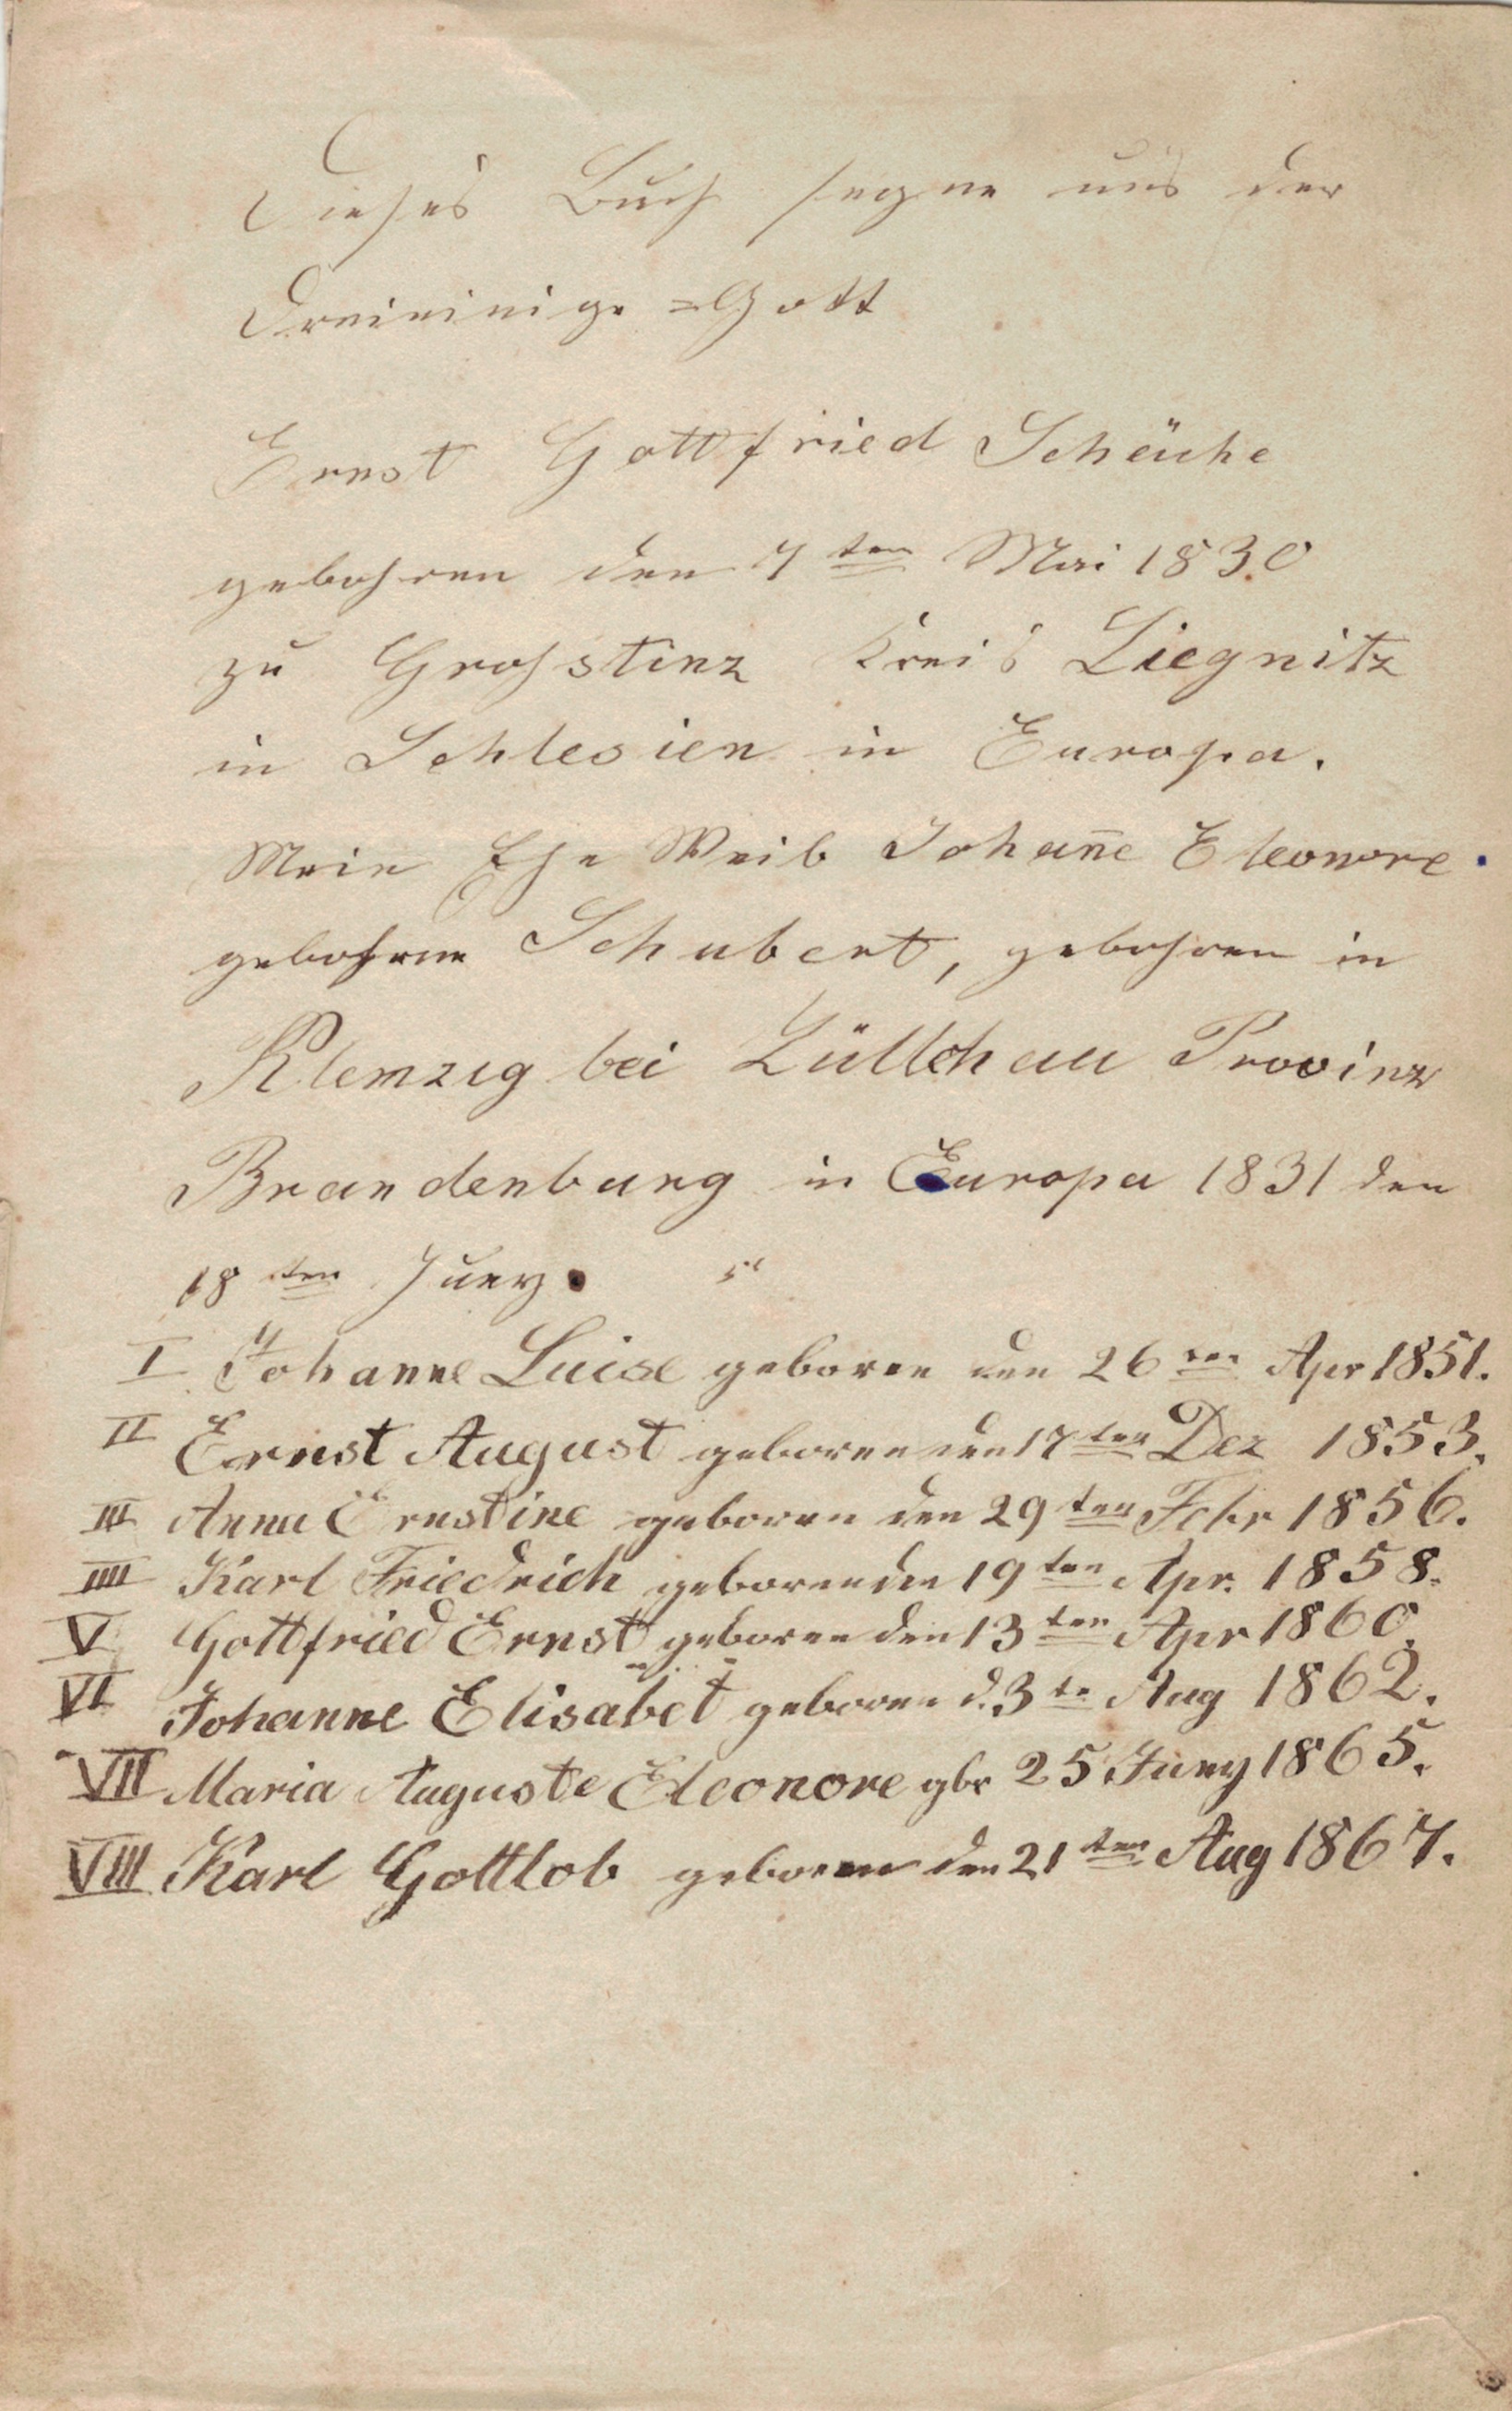 Dieses Buch segne uns der
Dreieinige = Gott
Ernst Gottfried Scheuke
gebohren den 7ten Mai 1830
zu Grosstinz Kreis Liegnitz
in Schlesien in Europa.
Mein Ehe Weib Johan̄e Eleonore
gebohrne Schubert, gebohren in
Klemzig bei Züllchau Provinz
Brandenburg in Europa 1831 den
18ten Juny.
I Johanne Luise geboren den 26ten Apr 1851.
II Ernst August geboren den 17ten Dez 1853.
III Anna Ernstine geboren den 29ten Febr 1856.
IIII Karl Friedrich geboren den 19ten Apr. 1858.
V Gottfried Ernst geboren den 13ten Apr 1860.
VI Johanne Elisabet geboren d. 3te Aug 1862.
VII Maria Auguste Eleonore gbr 25 Juny 1865.
VIII Karl Gottlob geboren den 21ten Aug 1867.